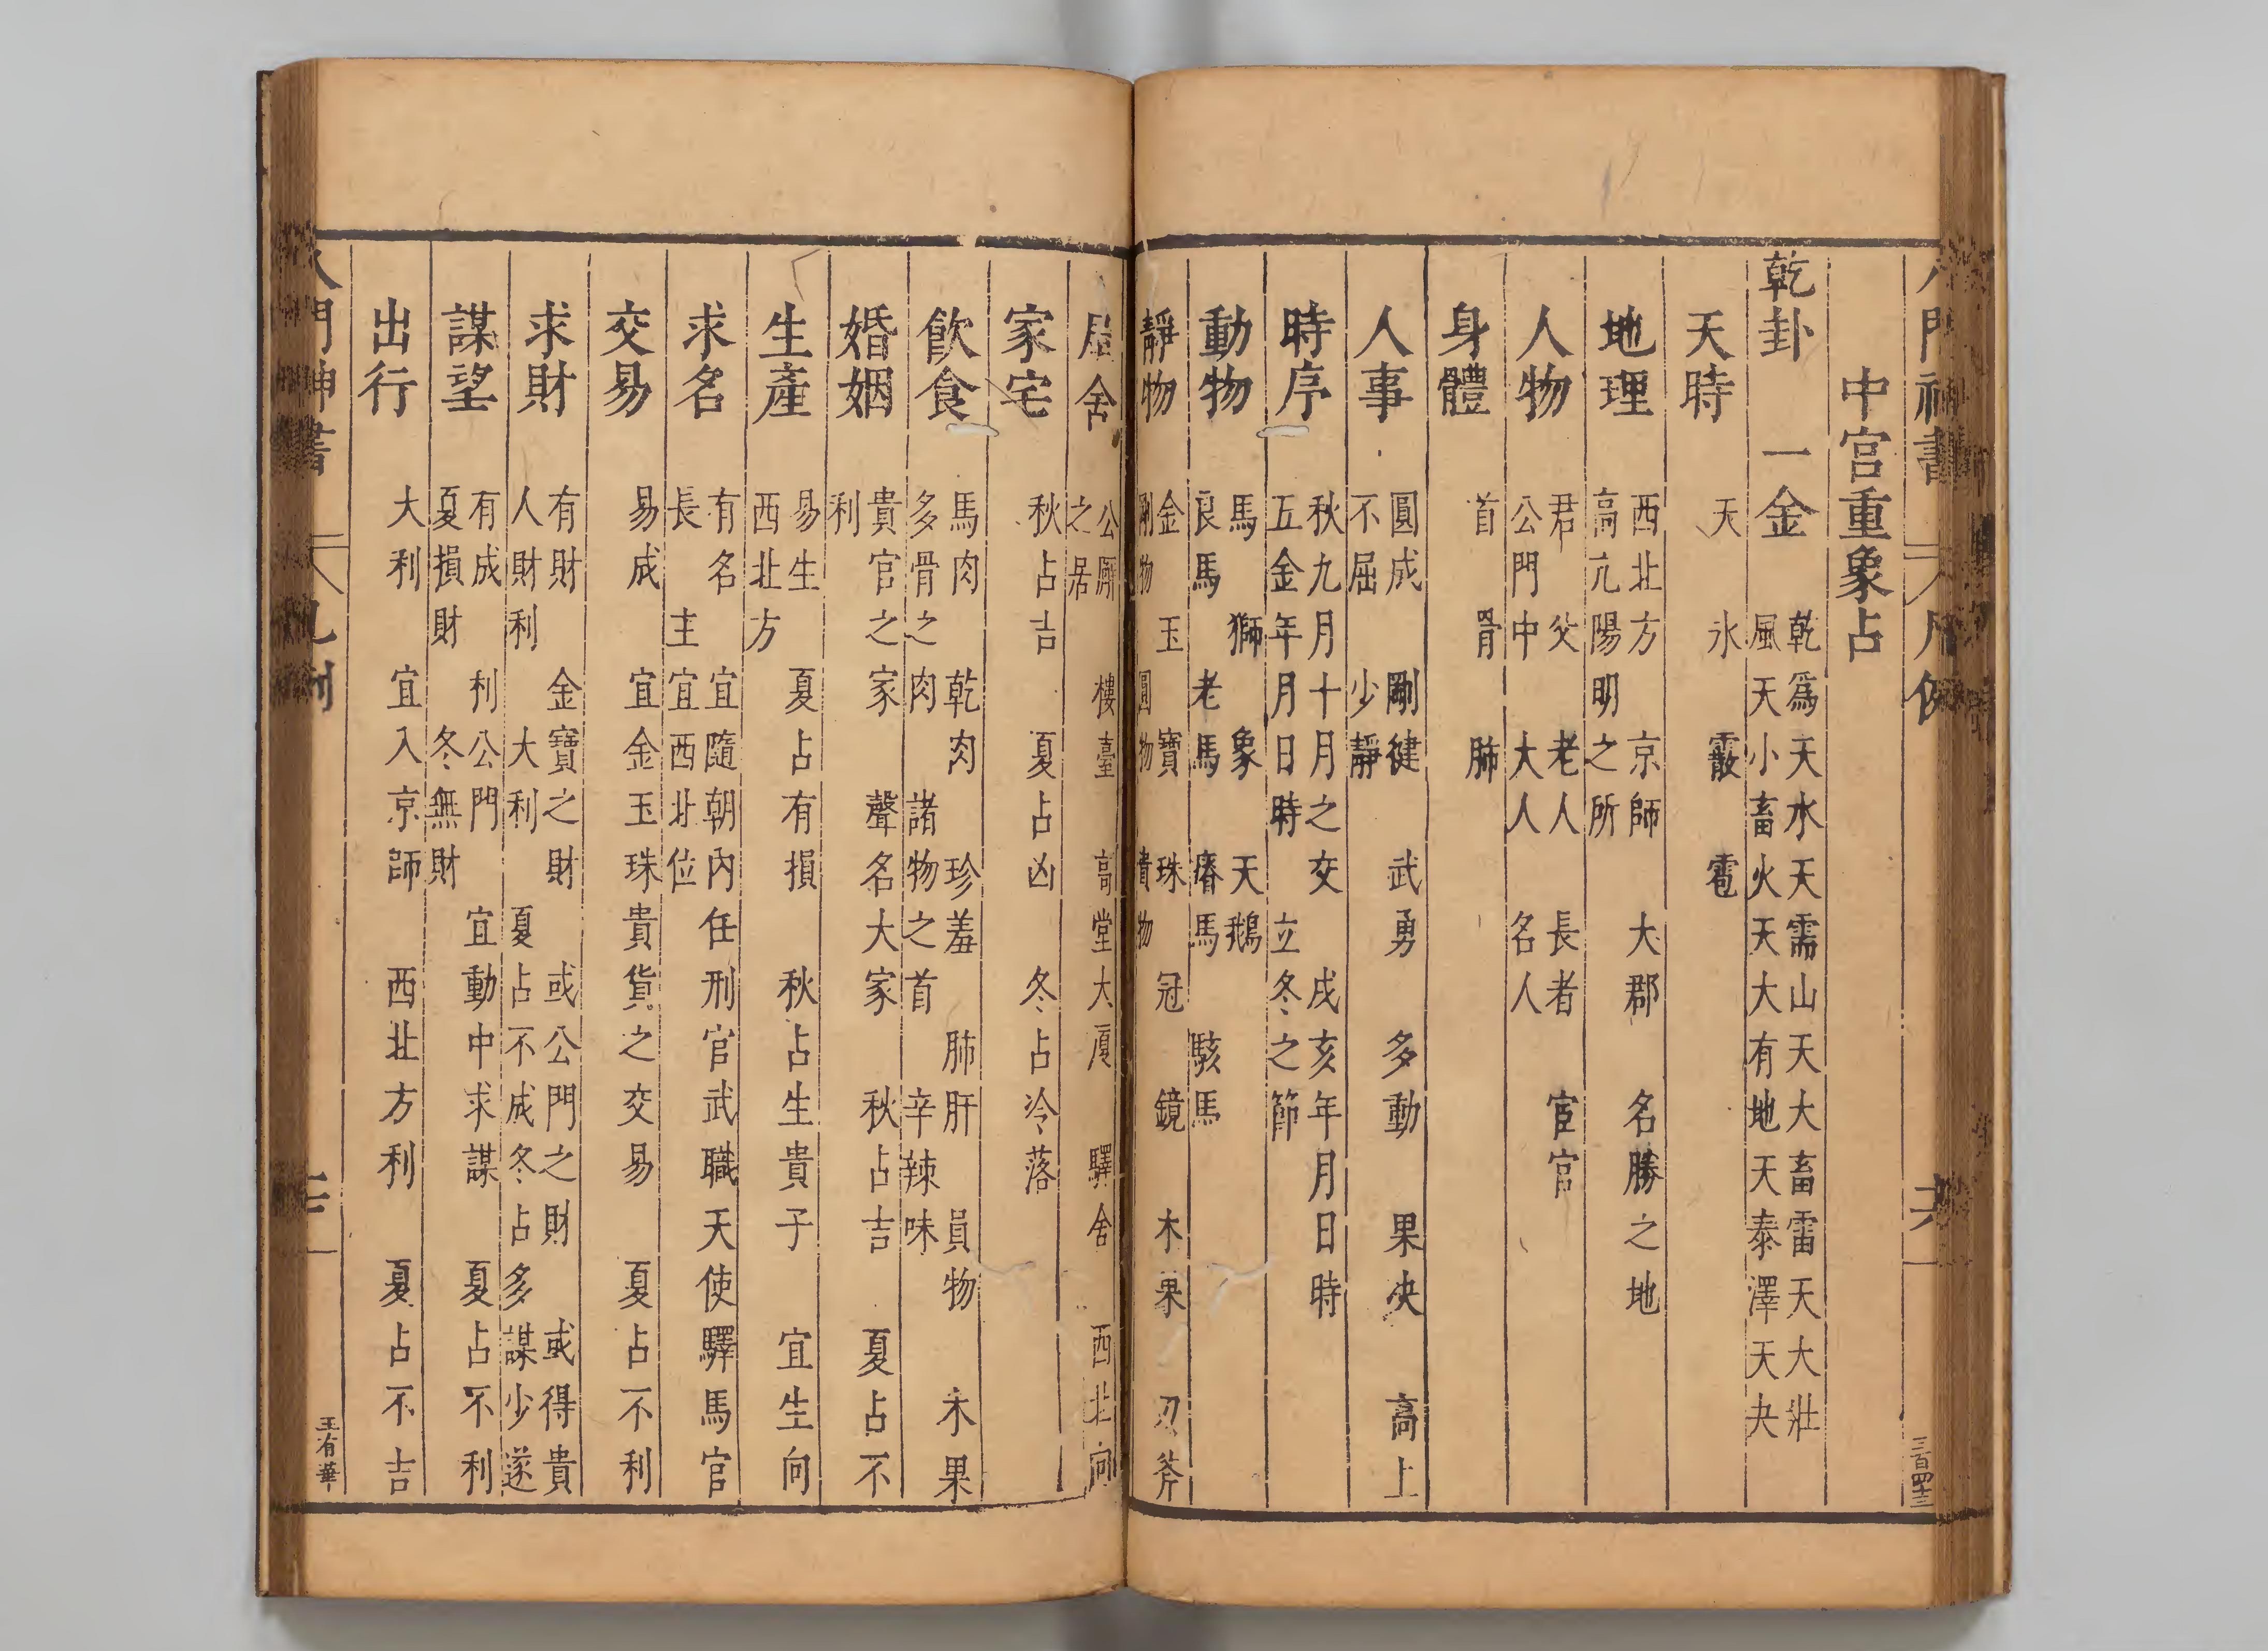 中宮重象占
乾卦 一金 乾爲天水天需山天大畜雷天大壯
風天小畜火天大有地天泰澤天夬
天時 天 氷 霰 雹
地理 西北方 京師 大郡 名勝之地
高亢陽明之所
人物 君 父 老人 長者 宦官
公門中 大人 名人
身體 首 骨 肺
人事 圓成 剛健 武勇 多動 果决 高上
不屈 少靜
時序 秋九月十月之交 戌亥年月日時
五金年月日時 立冬之節
動物 馬 獅 象 天鵝
良馬 老馬 瘠馬 駁馬
靜物 金 玉 寶 珠 冠 鏡 木果 刃斧
剛物 圓物 貴物
居舍 公廨 樓臺 高堂大厦 驛舍 西北向
之居
家宅 秋占吉 夏占凶 冬占冷落
飲食 馬肉 乾肉 珍羞 肺肝 員物 木果
多骨之肉 諸物之首 辛辣味
婚姻 貴官之家 聲名大家 秋占吉 夏占不
利
生產 易生 夏占有損 秋占生貴子 宜生向
西北方
求名 有名 宜隨朝內任刑官武職天使驛馬官
長 主宜西北位
交易 易成 宜金玉珠貴貨之交易 夏占不利
求財 有財 金寶之財 或公門之財 或得貴
人財利 大利 夏占不成冬占多謀少遂
謀望 有成 利公門 宜動中求謀 夏占不利
夏損財 冬無財
出行 大利 宜入京師 西北方利 夏占不吉
王有華